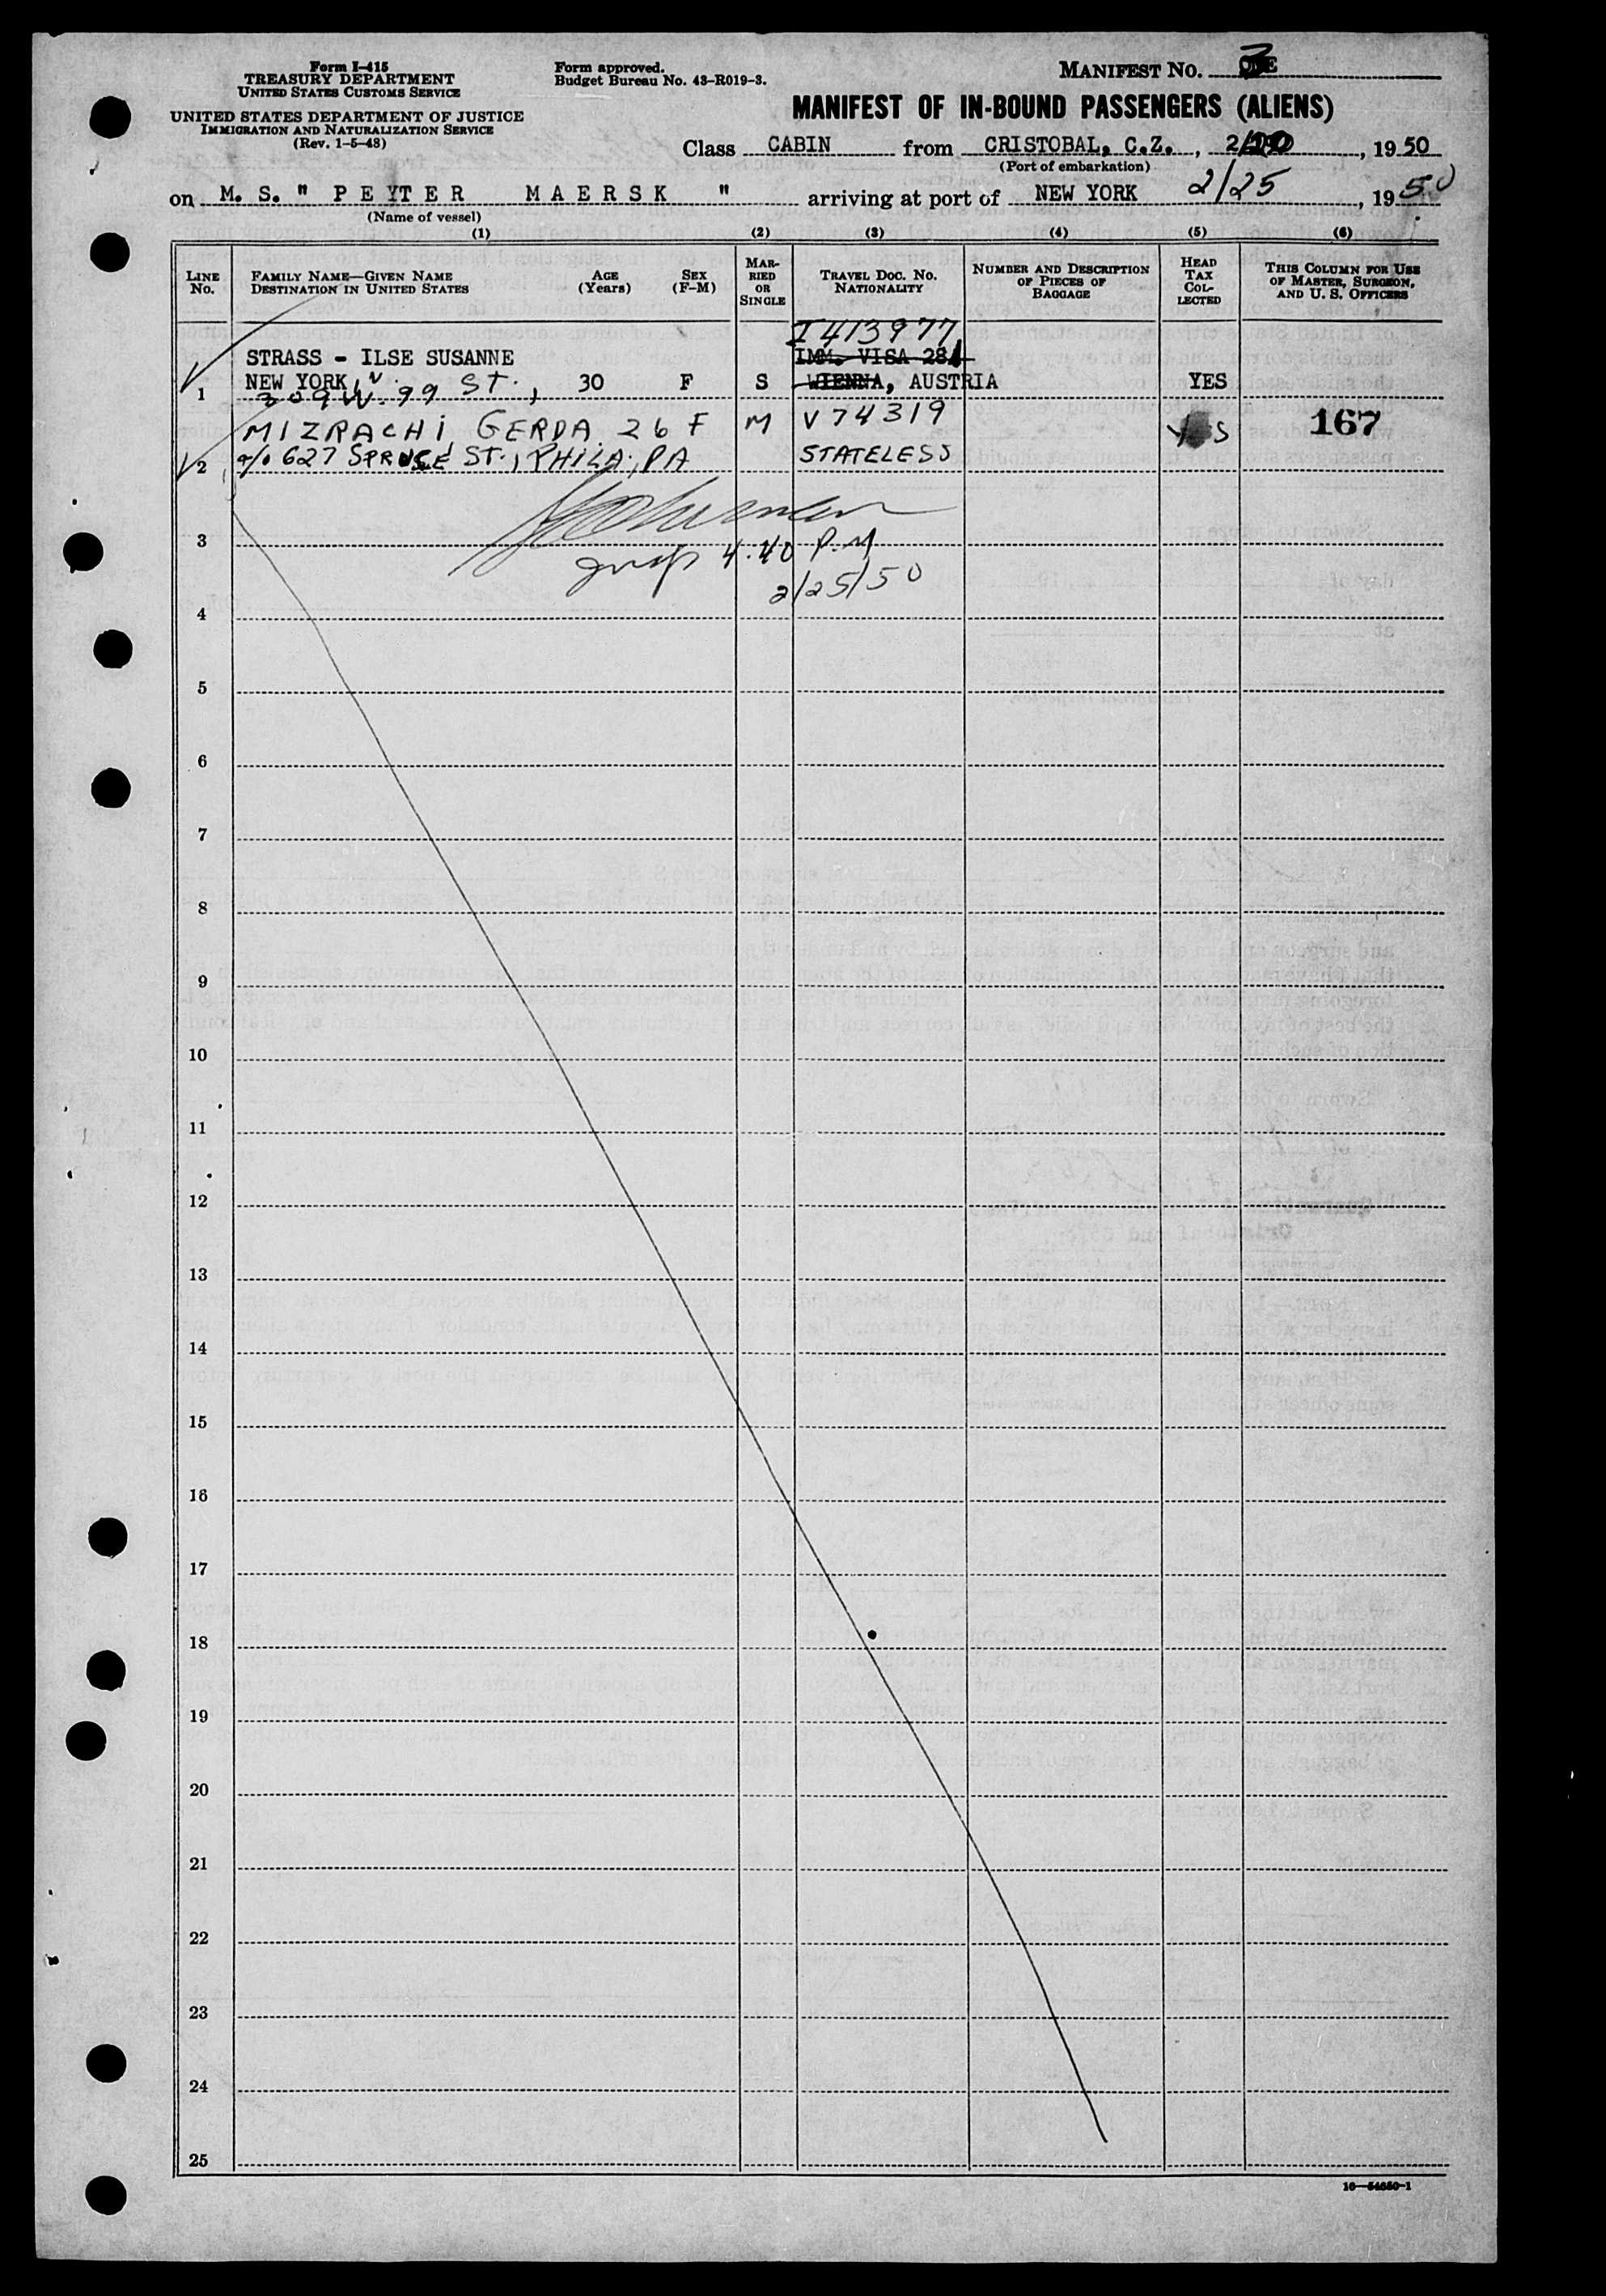 Form I-415
TREASURY DEPARTMENT
UNITED STATES CUSTOMS SERVICE
UNITED STATES DEPARTMENT OF JUSTICE
IMMIGRATION AND NATURALIZATION SERVICE
(Rev. 1-5-48)
Form approved.
Budget Bureau No. 43-R019-3.
MANIFEST No. 3
MANIFEST OF IN-BOUND PASSENGERS (ALIENS)
Class CABIN from CRISTOBAL, C.Z., 2/20, 1950
(Port of embarkation)
on M. S. " PETER MAERSK " arriving at port of NEW YORK 2/25, 1950
(Name of vessel)
(1) (2) (3) (4) (5) (6)
LINE No. FAMILY NAME—GIVEN NAME DESTINATION IN UNITED STATES AGE (Years) SEX (F-M) MARRIED OR SINGLE TRAVEL DOC. No. NATIONALITY NUMBER AND DESCRIPTION OF PIECES OF BAGGAGE HEAD TAX COLLECTED THIS COLUMN FOR USE OF MASTER, SURGEON, AND U. S. OFFICERS
I 413977
STRASS - ILSE SUSANNE IMM. VISA 281
1 NEW YORK, 30 F S WIENNA, AUSTRIA YES
309 W. 99 ST.,
MIZRACHI, GERDA 26 F M V 74319 YES 167
2 c/o 627 SPRUCE ST., PHILA., PA STATELESS
3
4.40 P.M
2/25/50
4
5
6
7
8
9
10
11
12
13
14
15
16
17
18
19
20
21
22
23
24
25